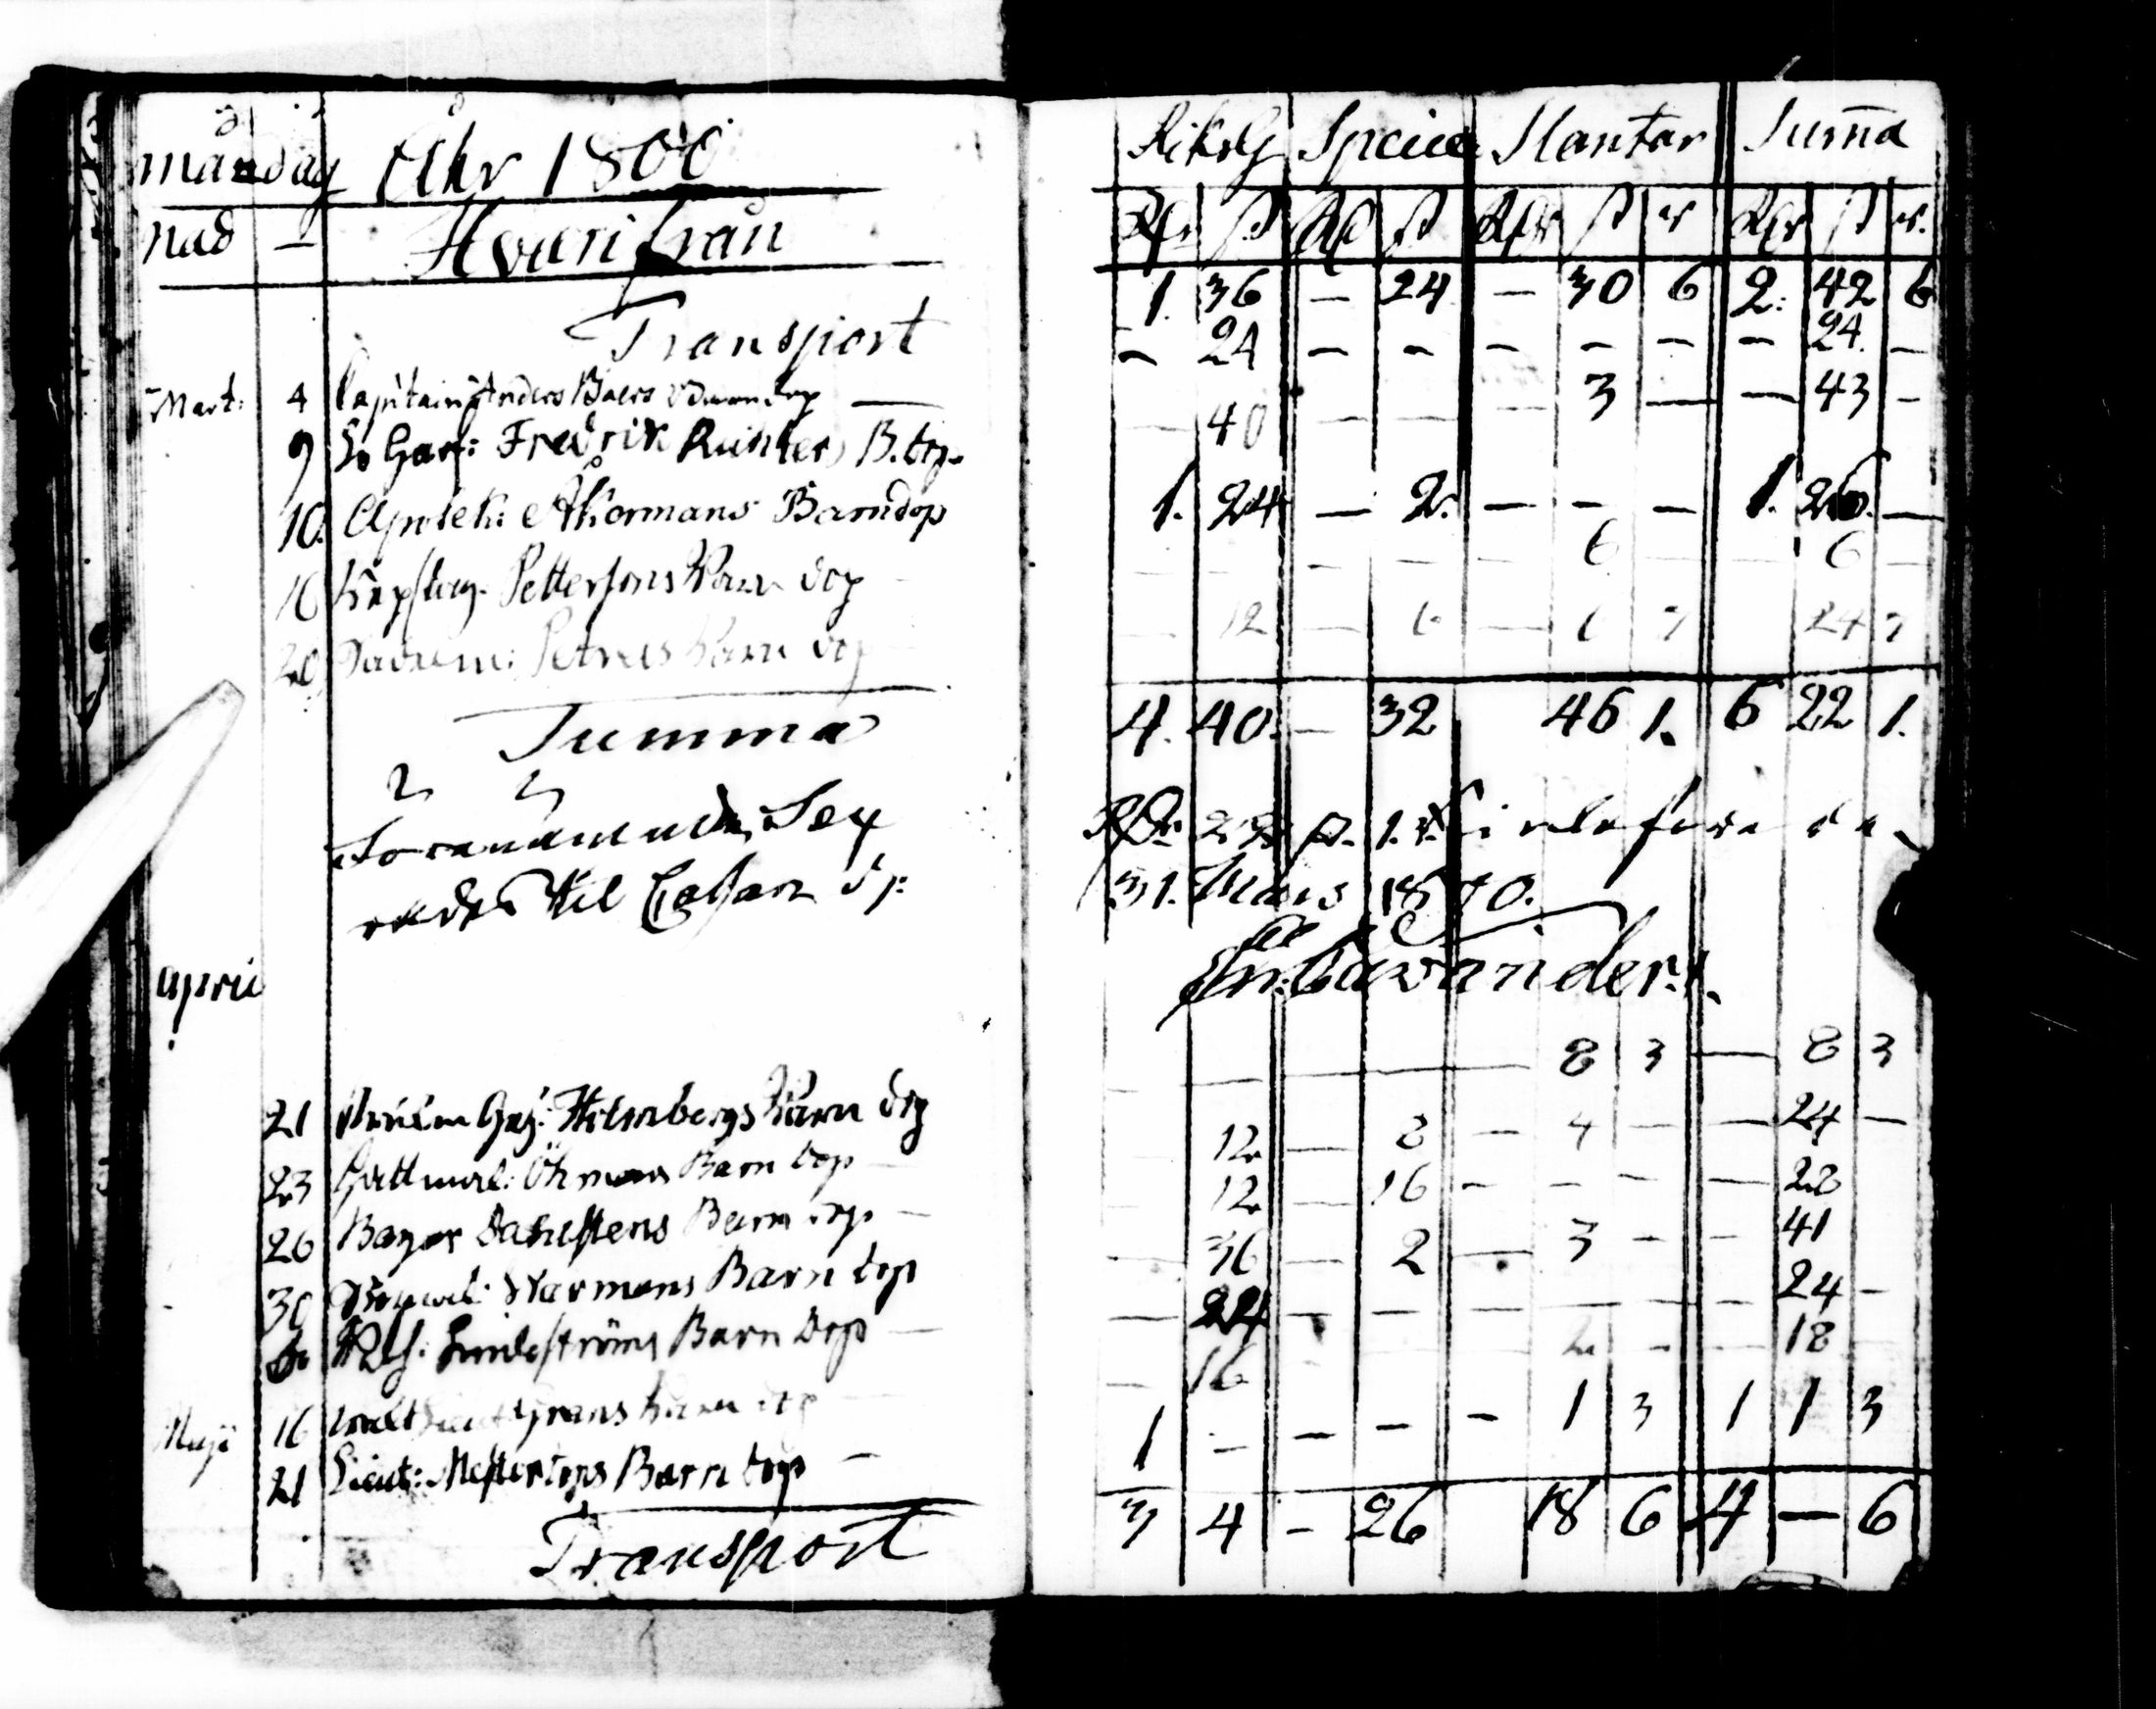 månad dag Åhr 1800 Riksg Specie Slantar Suma
nad — Hvarifrån Rdr ß Rd ß Rdr ß r Rdr ß r.
Transport 1. 36 — 24 — 30 6 2: 42 6
Mart: 4 Capitain Anders Baers Barndop — — 24 — — — — — — 24. —
9 Fredrik Richters B. dop. 40 — — — 3 — — 43 —
10. Apotek: Åkermans Barndop 1. 24 — 2. — — — 1. 26. —
16 Pettersons Barn dop — — — — — 6 — — 6 —
20 Petres Barn dop — 12 — 6 — 6 7 24 7
Summa 4. 40. — 32 46 1. 6 22 1.
Sex Rdr 22 ß. 1. r.
til Cassan d: 31. Mars 1800.
Cavander.
April
21 Holmbergs Barn dop — — — 8 3 — 8 3
23 Öhmans Barn dop — 12 — 8 — 4 — — 24 —
26 Barn dop — 12 — 16 — — — — 28
30 Warmans Barn dop — 36 — 2 — 3 — — 41
Lindeströms Barn dop — 24 — — — — — 24 —
Maji 16 Grans Barn dop — 16 2 — — 18
21 Lieut: Mestertons Barn dop — 1 — — — — 1 3 1 1 3
Transport 3 4 — 26 18 6 4 — 6